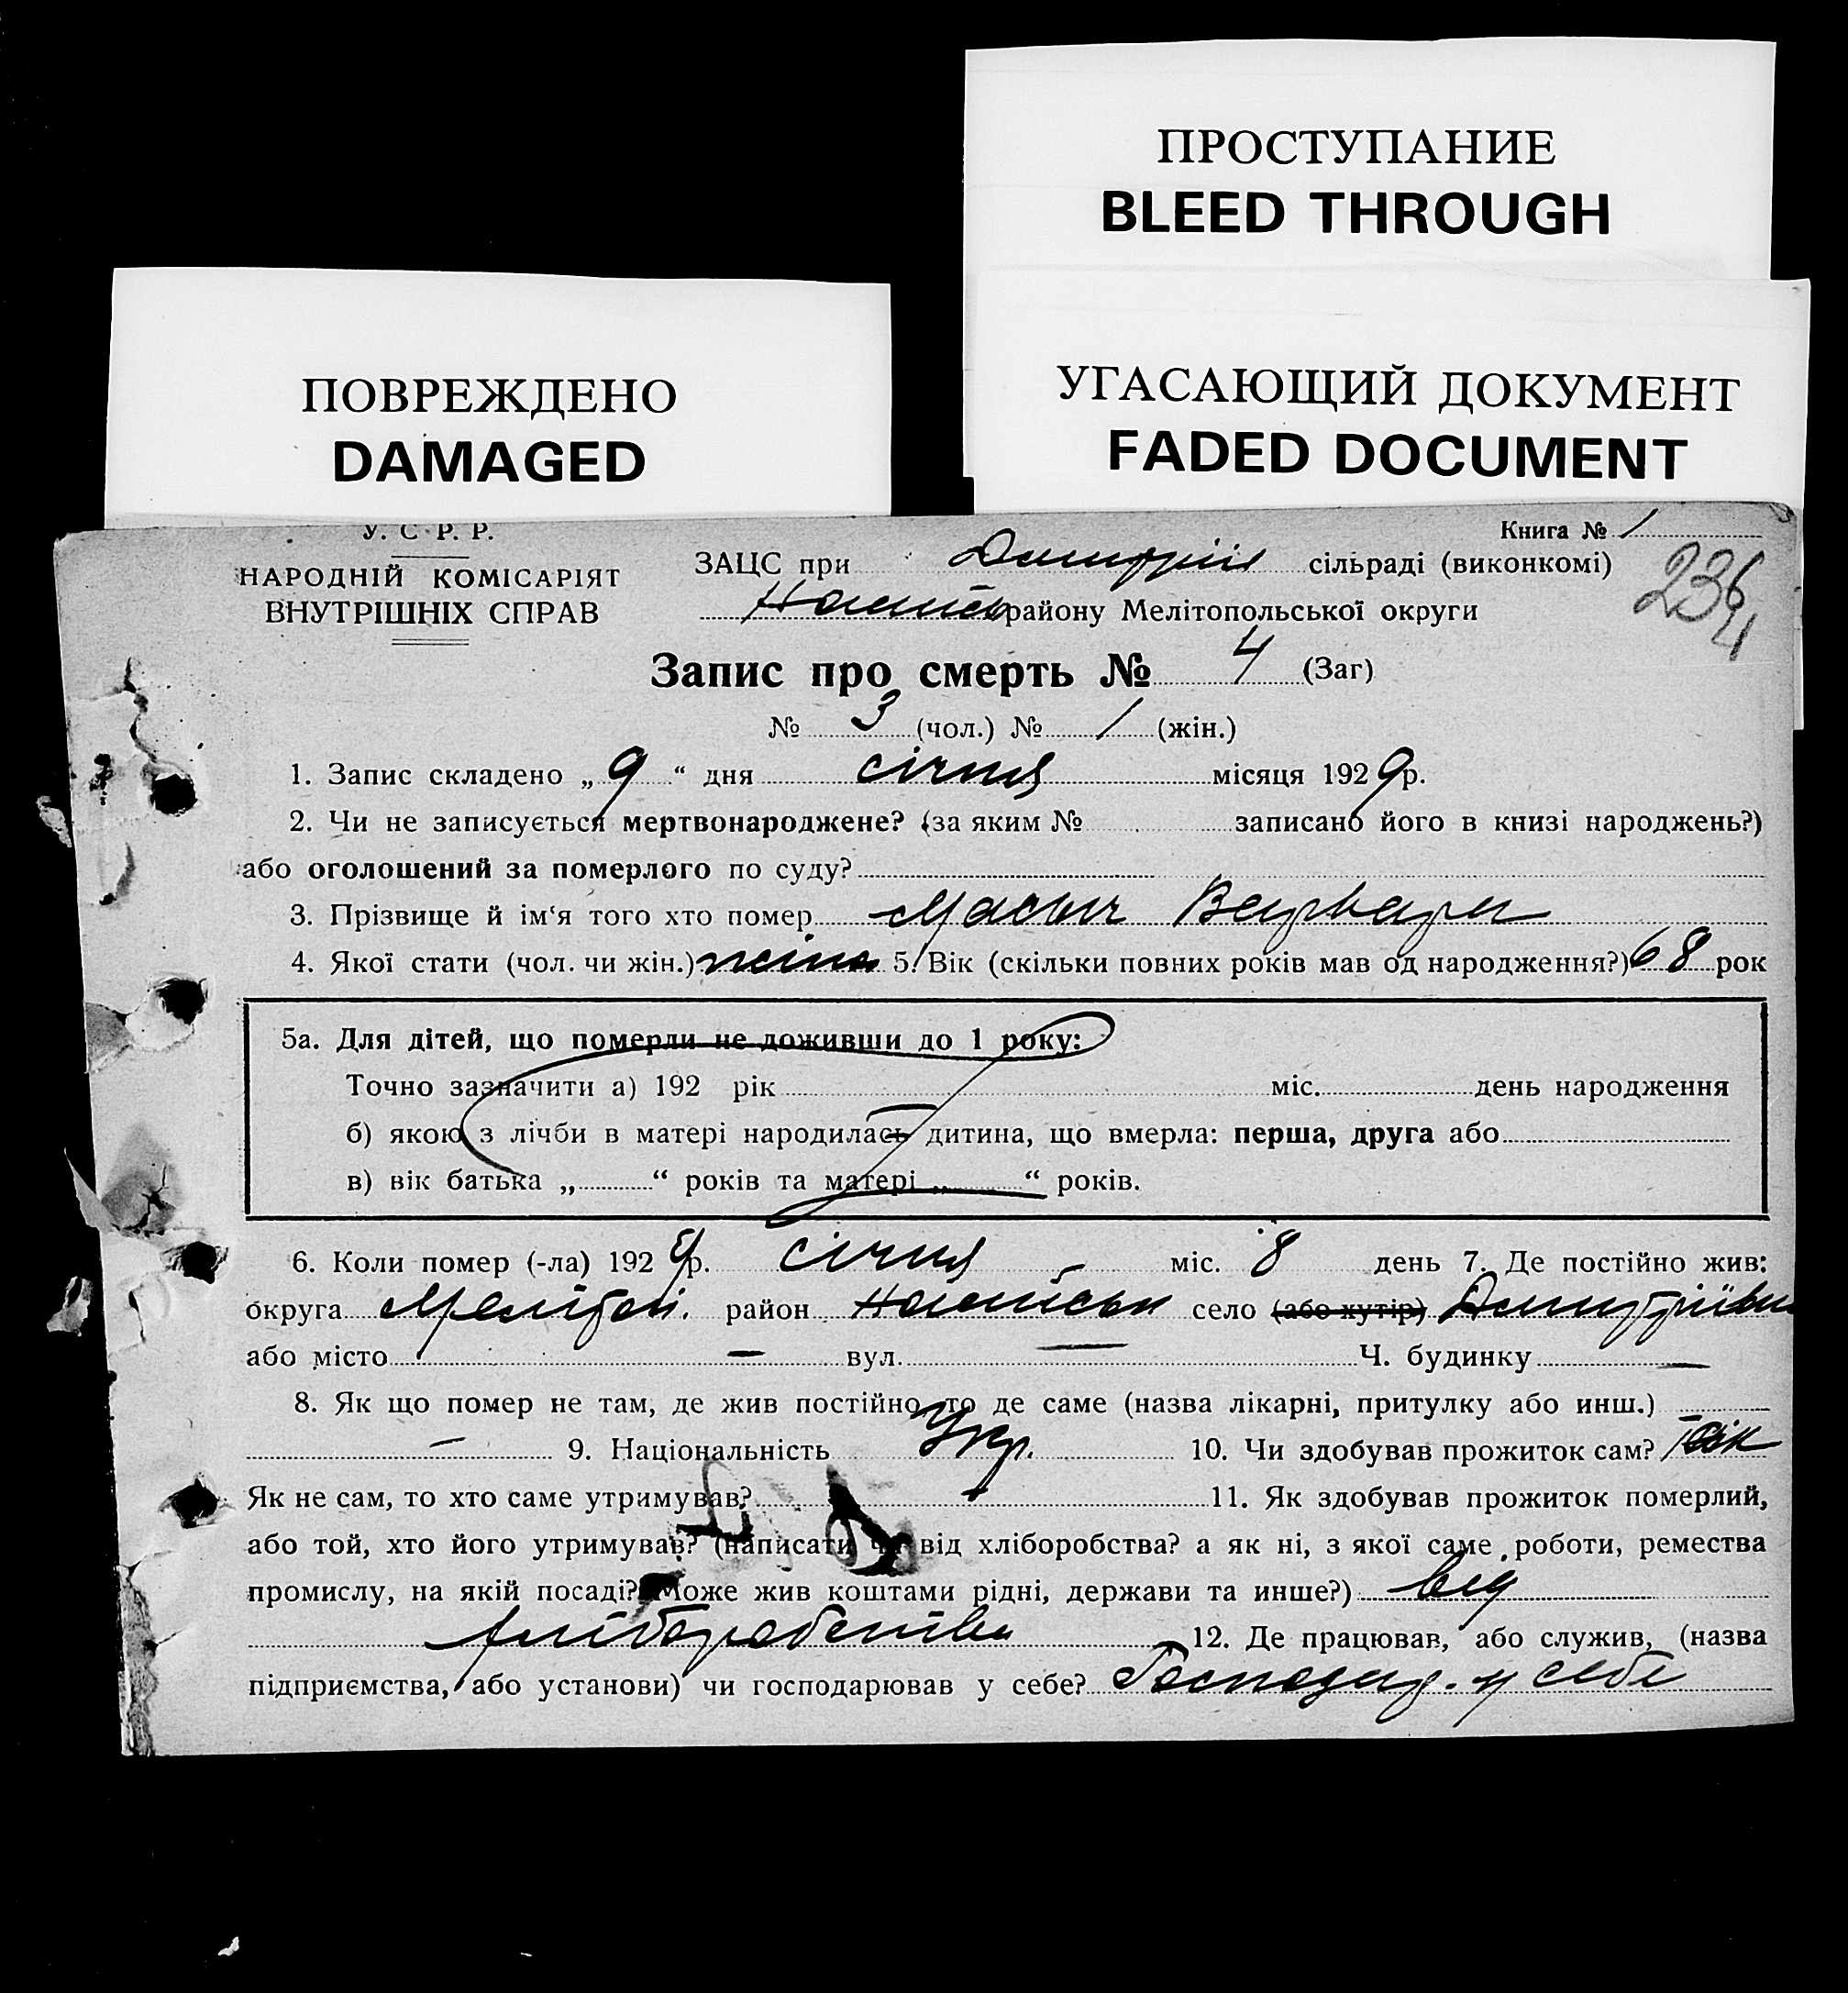 ПРОСТУПАНИЕ
BLEED THROUGH
ПОВРЕЖДЕНО
DAMAGED
УГАСАЮЩИЙ ДОКУМЕНТ
FADED DOCUMENT
У. С. Р. Р.
НАРОДНІЙ КОМІСАРІЯТ
ВНУТРІШНІХ СПРАВ
Книга № 1
ЗАЦС при сільраді (виконкомі)
району Мелітопольської округи
236
Запис про смерть № 4 (Заг)
№ 3 (чол.) № 1 (жін.)
1. Запис складено „ 9 “ дня січня місяця 1929р.
2. Чи не записується мертвонароджене? (за яким № записано його в книзі народжень?)
або оголошений за померлого по суду?
3. Прізвище й ім‘я того хто помер Варвара
4. Якої стати (чол. чи жін.) жіноч 5. Вік (скільки повних років мав од народження?) 68 рок
5а. Для дітей, що померли не доживши до 1 року:
Точно зазначити а) 192 рік міс. день народження
б) якою з лічби в матері народилась дитина, що вмерла: перша, друга або
в) вік батька „ “ років та матері „ “ років.
6. Коли помер (-ла) 1929р. січня міс. 8 день 7. Де постійно жив:
округа Мелітоп. район село (або хутір) Дмитріївка
або місто — вул. — Ч. будинку —
8. Як що помер не там, де жив постійно, то де саме (назва лікарні, притулку або инш.)
— 9. Національність Укр. 10. Чи здобував прожиток сам? Так
Як не сам, то хто саме утримував? 11. Як здобував прожиток померлий,
або той, хто його утримував? (написати чи від хліборобства? а як ні, з якої саме роботи, ремества
промислу, на якій посаді? Може жив коштами рідні, держави та инше?) від
хліборобства 12. Де працював, або служив, (назва
підприємства, або установи) чи господарював у себе? Господар. у себе